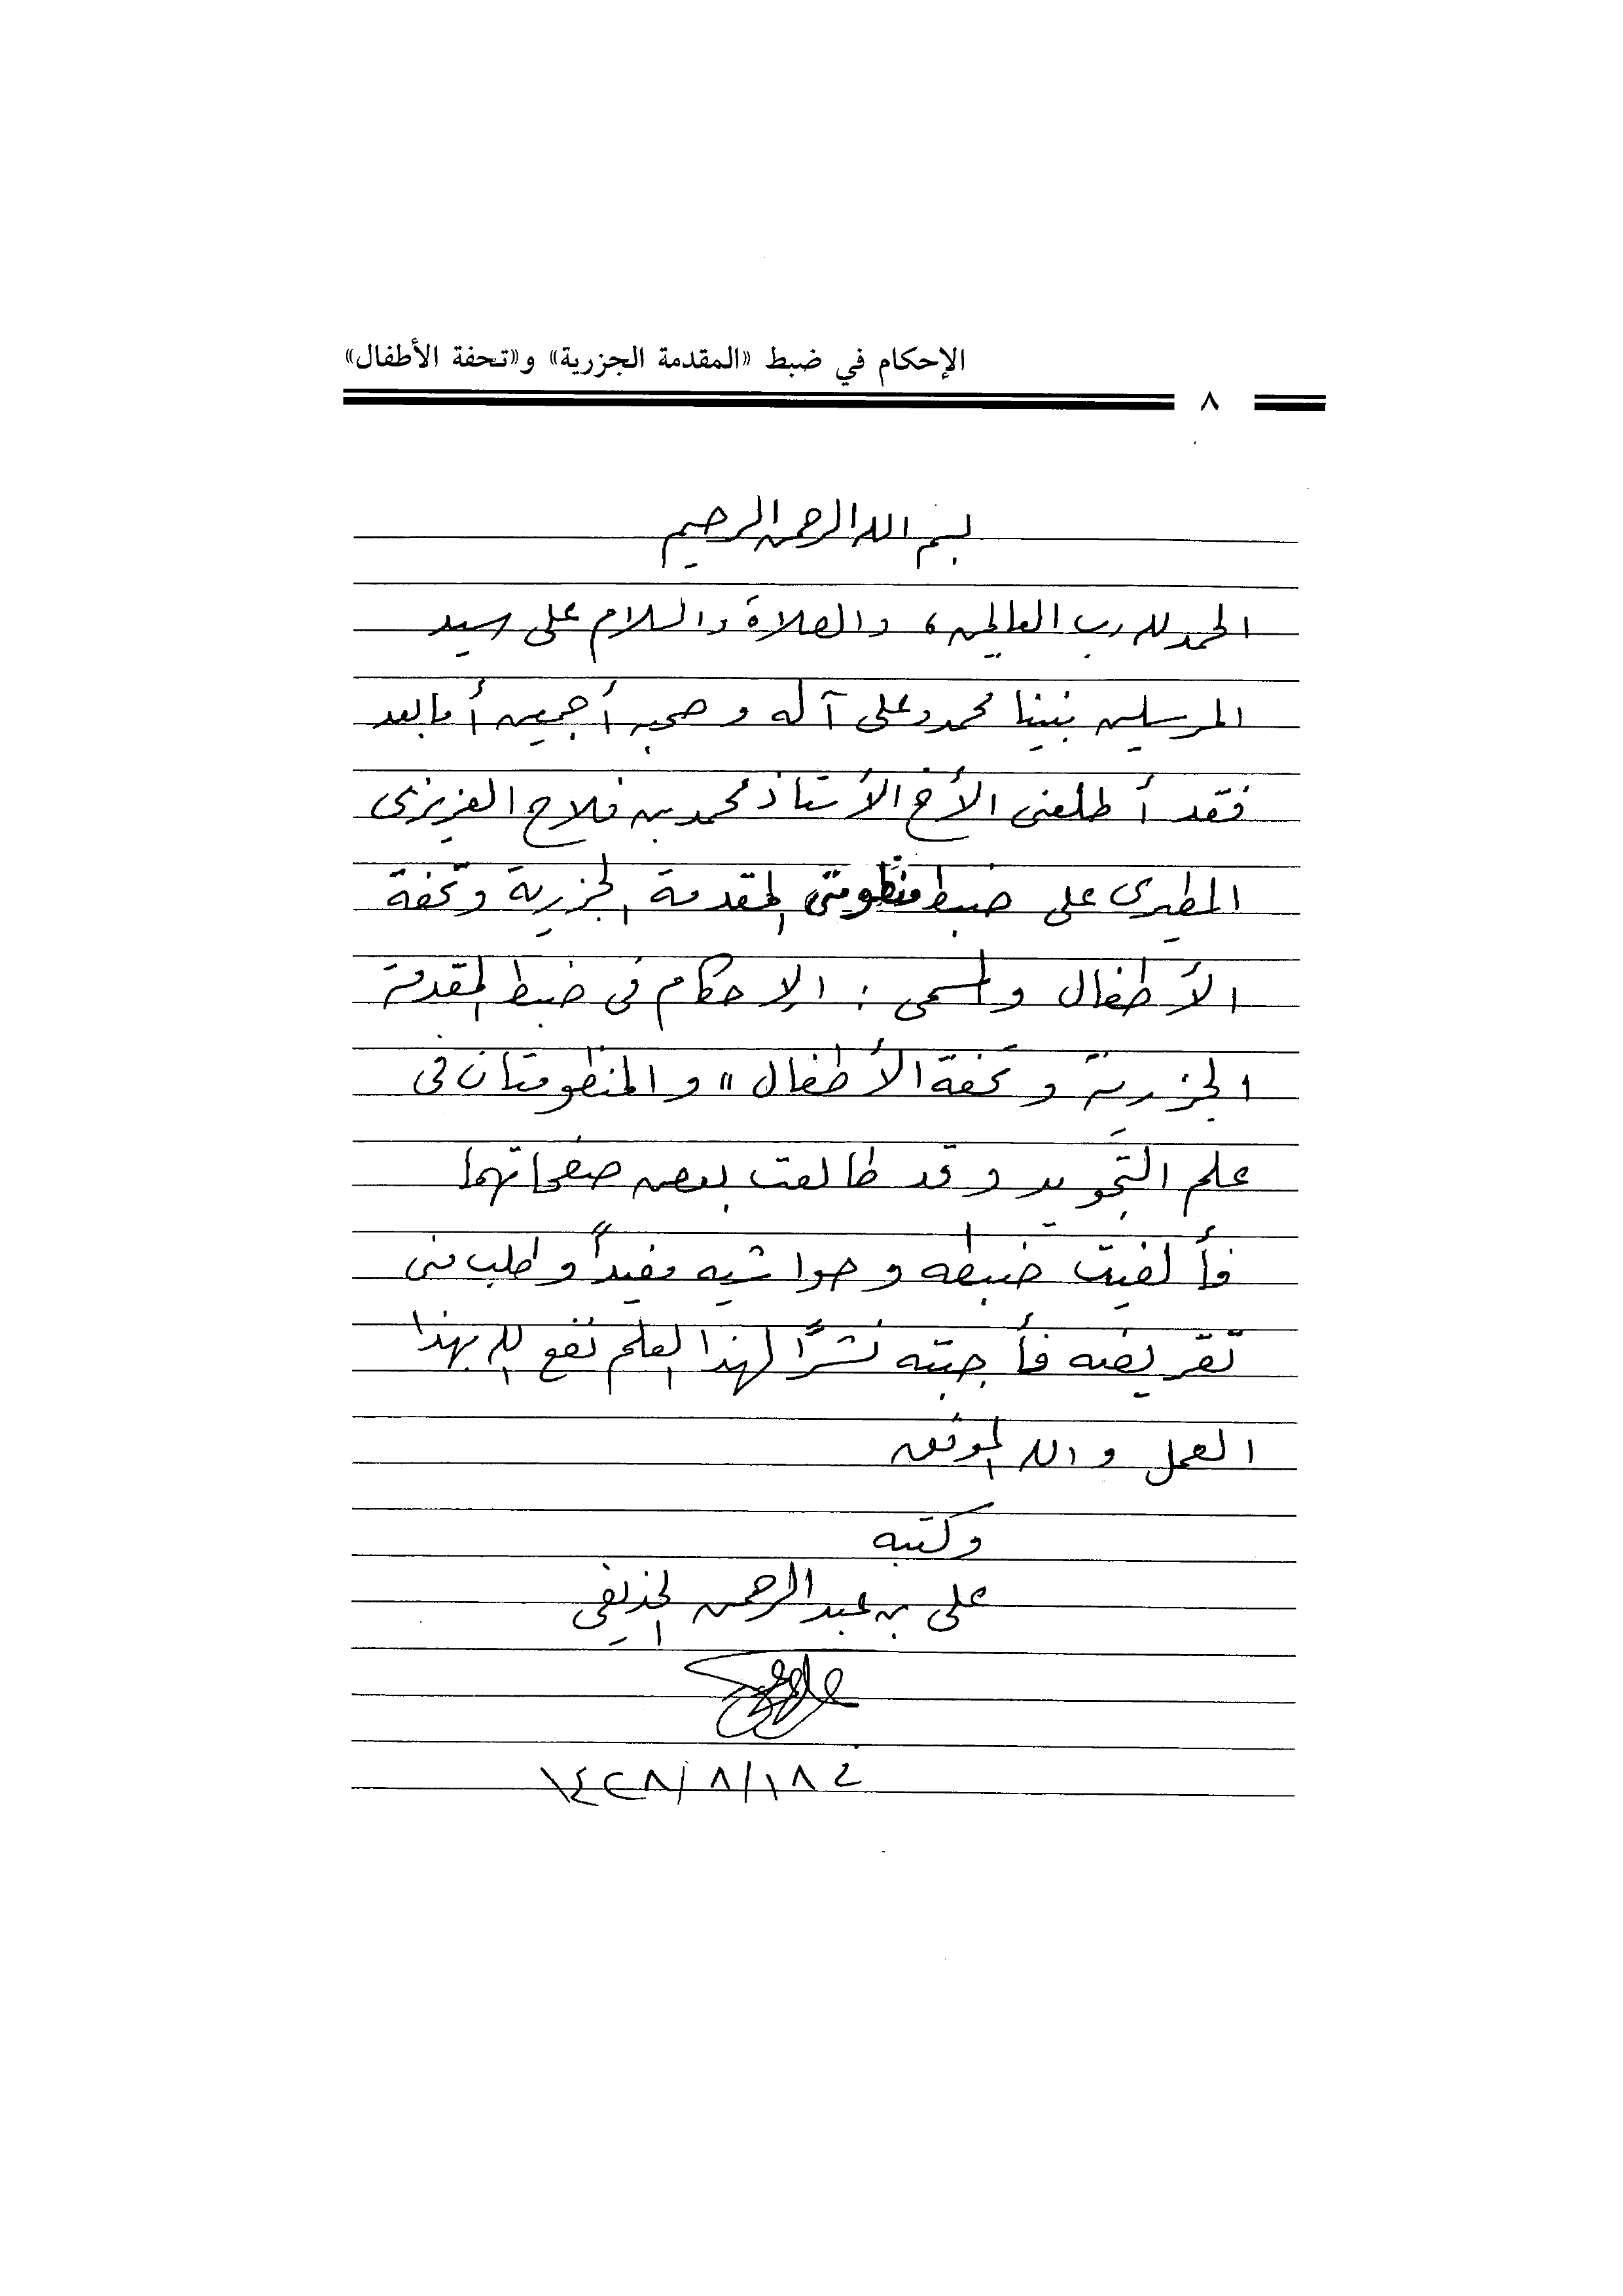 الإحكام في ضبط «المقدمة الجزرية» و«تحفة الأطفال»
٨
بسم الله الرحمن الرحيم
الحمد لله رب العالمين، والصلاة والسلام على سيد
المرسلين نبينا محمد وعلى آله وصحبه أجمعين أما بعد
فقد أطلعنى الأخ الأستاذ محمد بن فلاح العزيزى
المطيرى على ضبط منظومتى المقدمة الجزرية وتحفة
الأطفال والمسمى : الإحكام فى ضبط المقدمة
الجزرية وتحفة الأطفال" والمنظومتان فى
علم التجويد وقد طالعت بعض صفحاتهما
فألفيت ضبطه وحواشيه مفيداً وطلب منى
تقريضه فأجبته نشرًا لهذا العلم نفع الله بهذا
العمل والله الموفق
وكتبه
على بن عبد الرحمن الحذيفى
١٤٢٨/٨/١٨